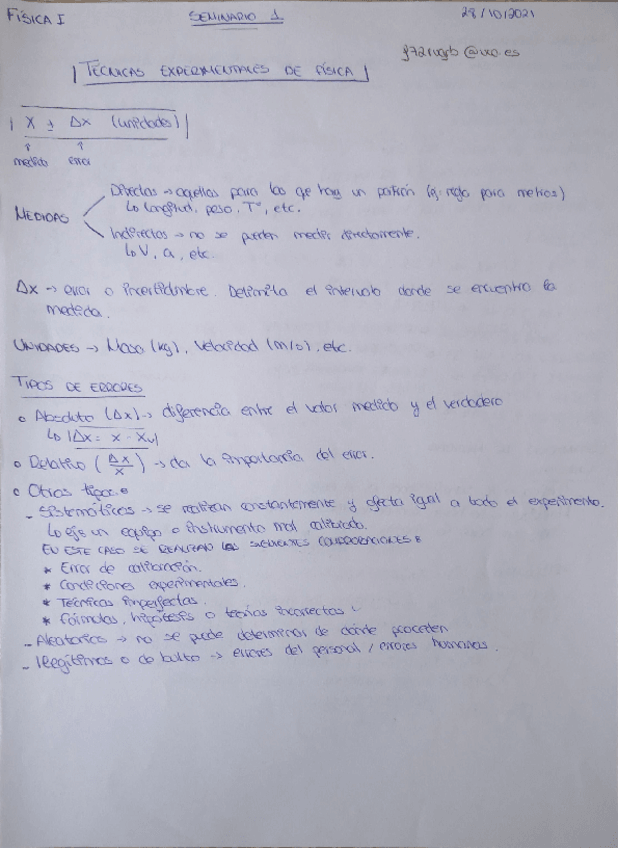 FÍSICA I SEMINARIO 1 28/10/2021
@uco.es
TÉCNICAS EXPERIMENTALES DE FÍSICA
X ± Δx (unidades)
↑ ↑
medido error
MEDIDAS
Directas → aquellas para las que hay un patrón (ej: regla para metros)
↳ Longitud, peso, Tº, etc.
Indirectas → no se pueden medir directamente.
↳ V, a, etc.
Δx → error o incertidumbre. Delimita el intervalo donde se encuentra la
medida.
UNIDADES → Masa (kg), Velocidad (m/s), etc.
TIPOS DE ERRORES
o Absoluto (Δx) → diferencia entre el valor medido y el verdadero
↳ |Δx = x - xv|
o Relativo (Δx/x) → da la importancia del error.
o Otros tipos:
- Sistemáticos → se realizan constantemente y afecta igual a todo el experimento.
↳ ej: un equipo o instrumento mal calibrado.
EN ESTE CASO SE REALIZAN LAS SIGUIENTES COMPROBACIONES:
* Error de calibración.
* Condiciones experimentales.
* Técnicas imperfectas.
* Fórmulas, hipótesis o teorías incorrectas
- Aleatorios → no se puede determinar de dónde proceden
- Ilegítimos o de bulto → errores del personal / errores humanos.